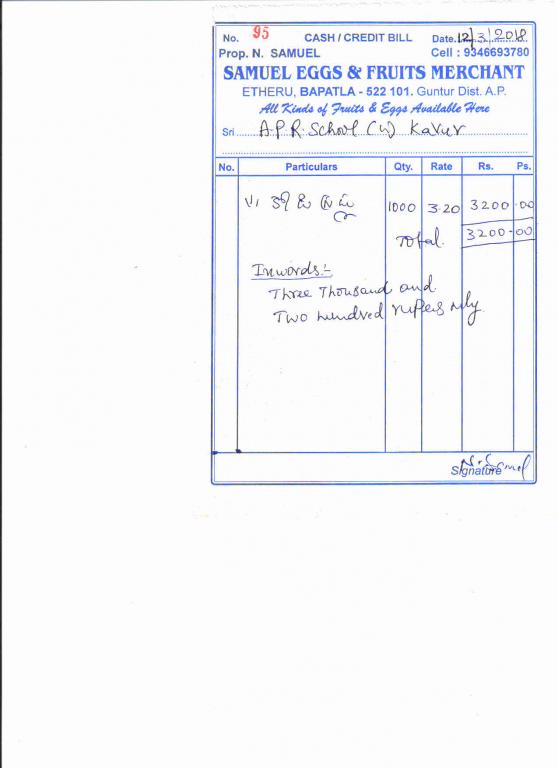 No. 95 CASH / CREDIT BILL Date. 12/3/2018
Prop. N. SAMUEL Cell : 9346693780
SAMUEL EGGS & FRUITS MERCHANT
ETHERU, BAPATLA - 522 101. Guntur Dist. A.P.
All Kinds of Fruits & Eggs Available Here
Sri A.P.R. School (W) Kavur
No. Particulars Qty. Rate Rs. Ps.
1000 3.20 3200.00
Total. 3200-00
Inwords:-
Three Thousand and
Two hundred rupees only
Signature